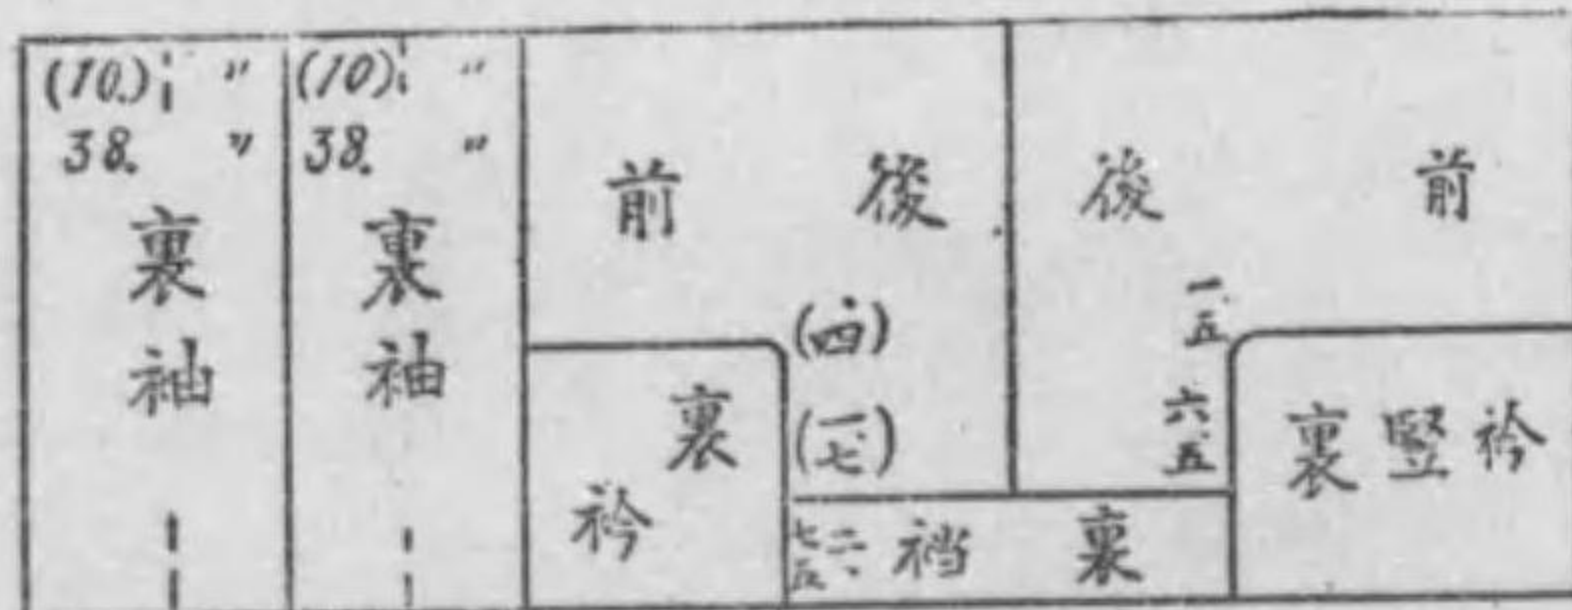 (10.) 〃
38. 〃
裏袖
(10) 〃
38. 〃
裏袖
前 後
(四)
(一七)
裏
衿
後 前
一.五
六.五
裏 竪 衿
裆 裏